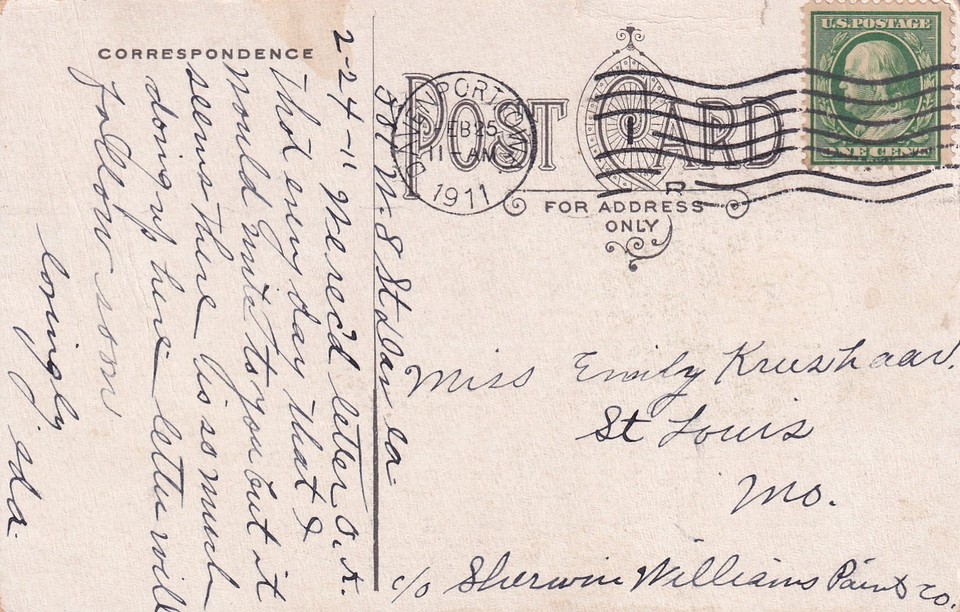 CORRESPONDENCE
2-24-11 Herec'd letter O.K.
Thot every day that I
would write to you but it
seems there is so much
doing up here – letter will
follow soon
lovingly
Ida.
W. 8 St Dav Ia
POST CARD
FOR ADDRESS
ONLY
DAVENPORT, IOWA
FEB 25
11 AM
1911
1
R
U.S. POSTAGE
ONE CENT
Miss Emily Krushaar.
St Louis
Mo.
c/o Sherwin Williams Paint Co.